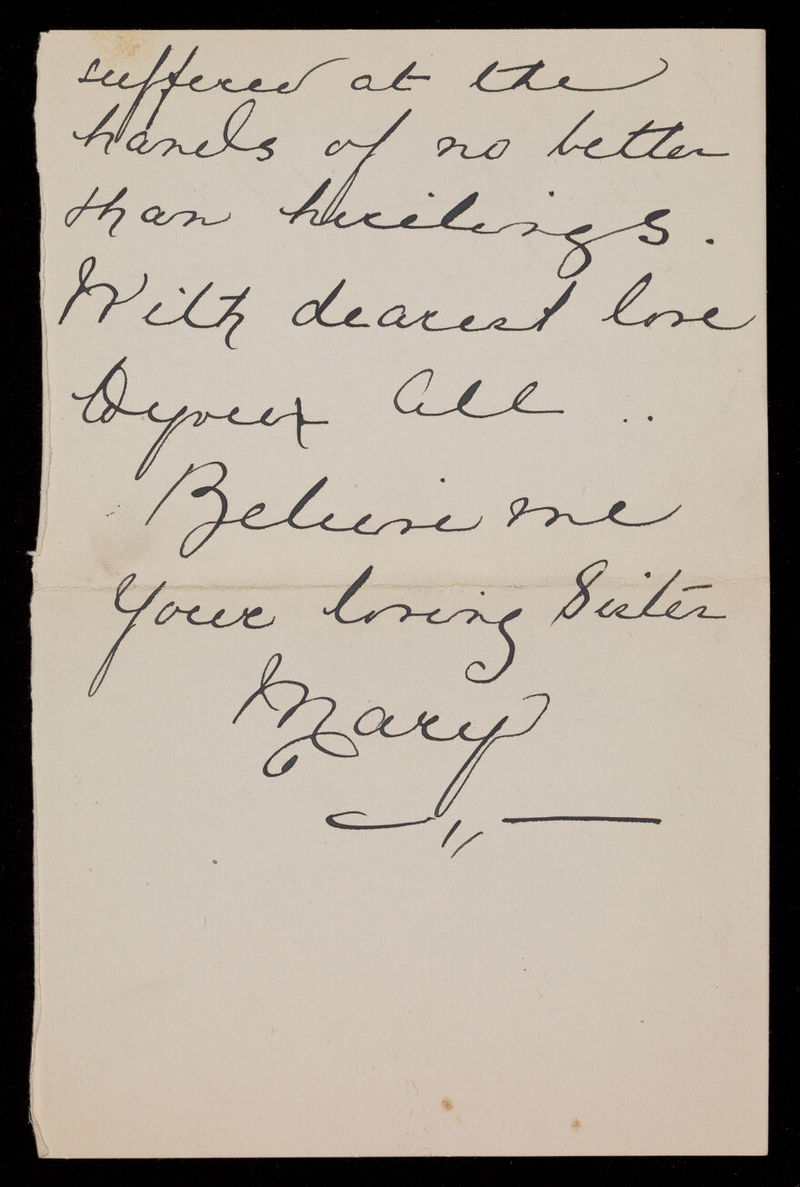 suffered at the
hands of no better
than hirelings.
With dearest love
to you all ..
Believe me
Your loving Sister
Mary